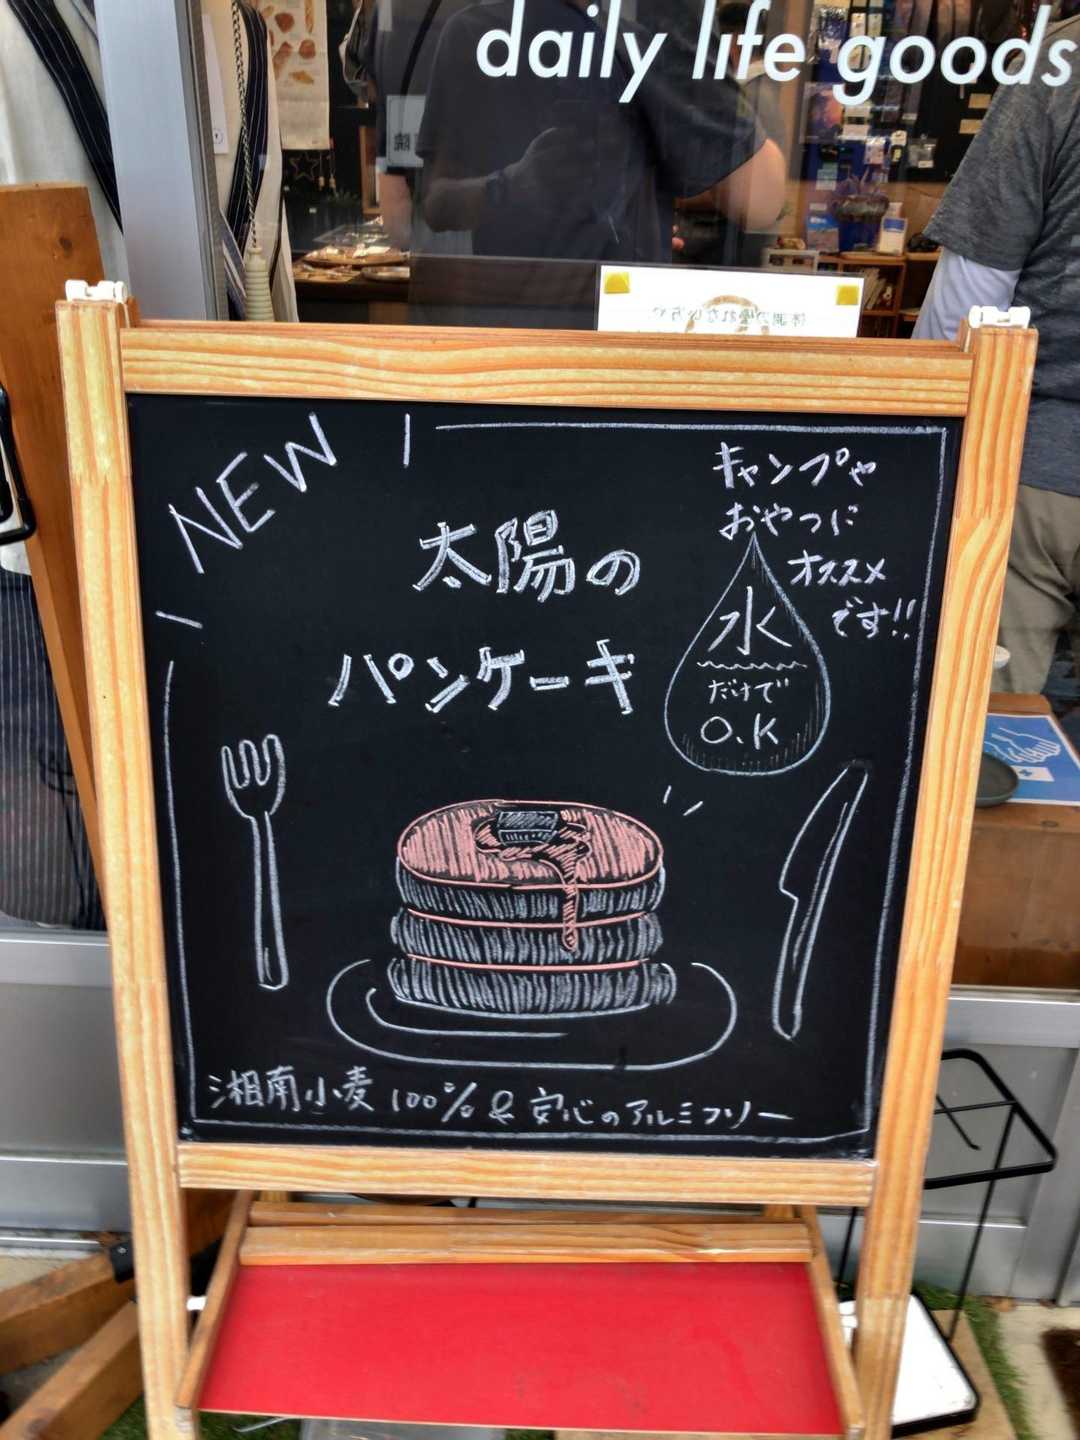 daily life goods
NEW
太陽の
パンケーキ
キャンプや
おやつに
オススメ
です!!
水
だけで
O.K
湘南小麦 100% & 安心のアルミフリー